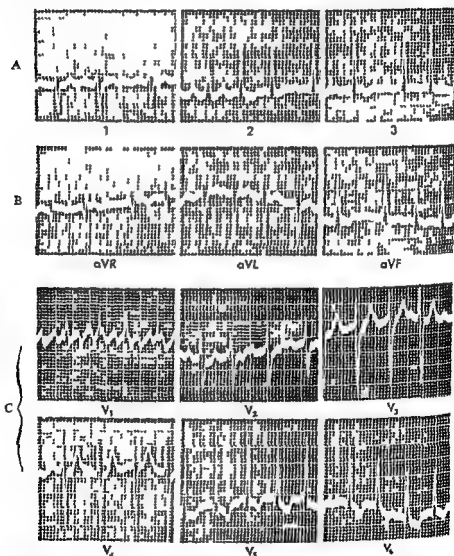 A
1 2 3
B
aVR aVL aVF
C
V1 V2 V3
V4 V5 V6